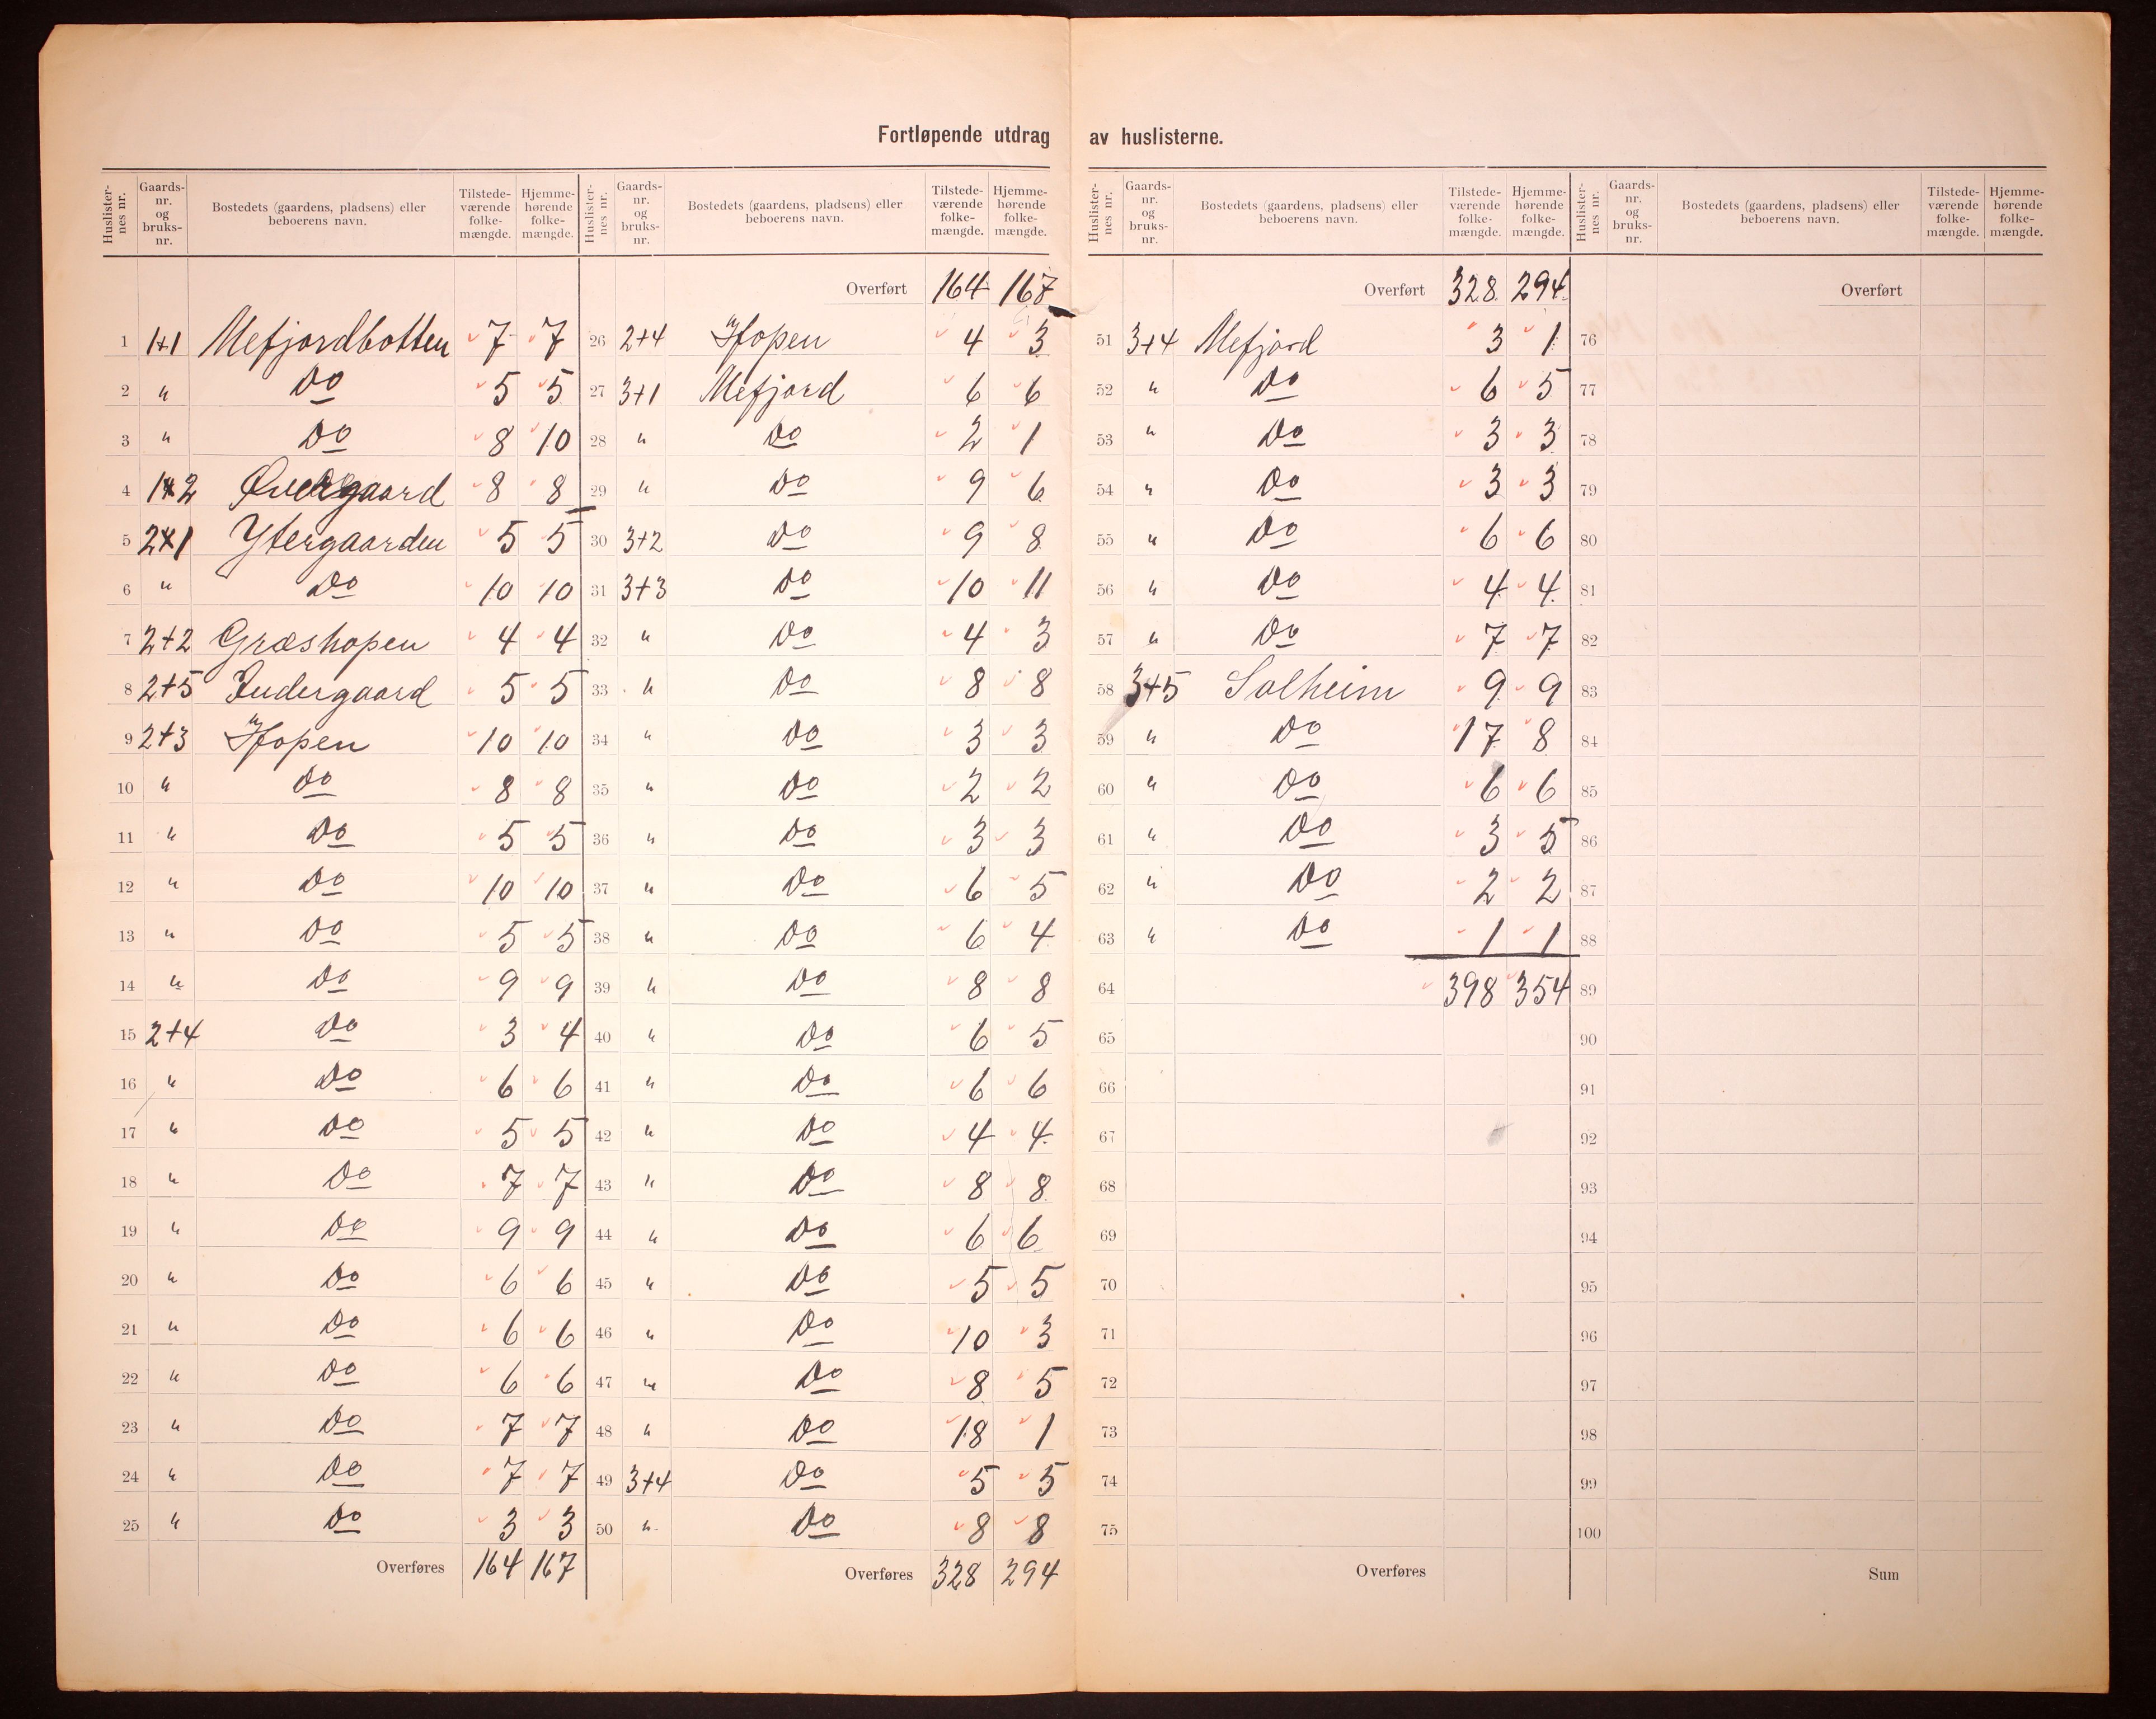 Fortløpende utdrag av huslisterne.
Huslister-nes nr. | Gaards-nr. og bruks-nr. | Bostedets (gaardens, pladsens) eller beboerens navn. | Tilstede-værende folke-mængde. | Hjemme-hørende folke-mængde.
1 1+1 Mefjordbotten 7 7
2 " Do 5 5
3 " Do 8 10
4 1+2 Øvergaard 8 8
5 2+1 Ytergaarden 5 5
6 " Do 10 10
7 2+2 Græshopen 4 4
8 2+5 Indergaard 5 5
9 2+3 Hopen 10 10
10 " Do 8 8
11 " Do 5 5
12 " Do 10 10
13 " Do 5 5
14 " Do 9 9
15 2+4 Do 3 4
16 " Do 6 6
17 " Do 5 5
18 " Do 7 7
19 " Do 9 9
20 " Do 6 6
21 " Do 6 6
22 " Do 6 6
23 " Do 7 7
24 " Do 7 7
25 " Do 3 3
Overføres 164 167
Huslister-nes nr. | Gaards-nr. og bruks-nr. | Bostedets (gaardens, pladsens) eller beboerens navn. | Tilstede-værende folke-mængde. | Hjemme-hørende folke-mængde.
Overført 164 167
26 2+4 Hopen 4 3
27 3+1 Mefjord 6 6
28 " Do 2 1
29 " Do 9 6
30 3+2 Do 9 8
31 3+3 Do 10 11
32 " Do 4 3
33 " Do 8 8
34 " Do 3 3
35 " Do 2 2
36 " Do 3 3
37 " Do 6 5
38 " Do 6 4
39 " Do 8 8
40 " Do 6 5
41 " Do 6 6
42 " Do 4 4
43 " Do 8 8
44 " Do 6 6
45 " Do 5 5
46 " Do 10 3
47 " Do 8 5
48 " Do 18 1
49 3+4 Do 5 5
50 " Do 8 8
Overføres 328 294
Huslister-nes nr. | Gaards-nr. og bruks-nr. | Bostedets (gaardens, pladsens) eller beboerens navn. | Tilstede-værende folke-mængde. | Hjemme-hørende folke-mængde.
Overført 328 294
51 3+4 Mefjord 3 1
52 " Do 6 5
53 " Do 3 3
54 " Do 3 3
55 " Do 6 6
56 " Do 4 4
57 " Do 7 7
58 3+5 Solheim 9 9
59 " Do 17 8
60 " Do 6 6
61 " Do 3 5
62 " Do 2 2
63 " Do 1 1
64 398 354
65
66
67
68
69
70
71
72
73
74
75
Overføres
Huslister-nes nr. | Gaards-nr. og bruks-nr. | Bostedets (gaardens, pladsens) eller beboerens navn. | Tilstede-værende folke-mængde. | Hjemme-hørende folke-mængde.
Overført
76
77
78
79
80
81
82
83
84
85
86
87
88
89
90
91
92
93
94
95
96
97
98
99
100
Sum